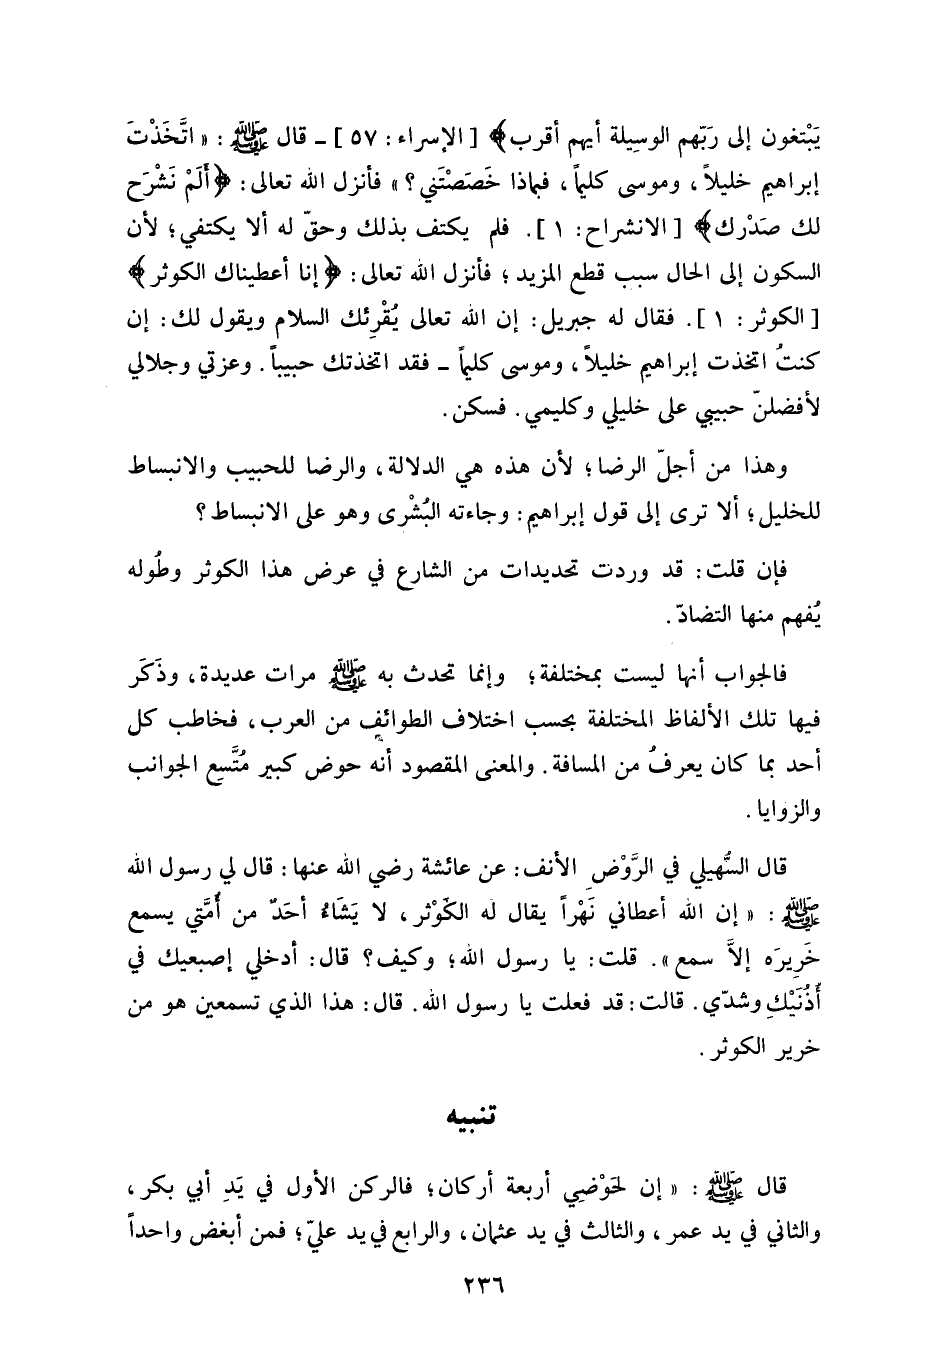 يَبْتغون إلى رَبّهم الوسِيلة أيهم أقرب﴾ [ الإسراء : ٥٧ ] ــ قال ﷺ : « اتَّخَذْتَ
إبراهيم خليلاً ، وموسى كليماً ، فبماذا خَصَصْتَني ؟ » فأنزل الله تعالى : ﴿أَلَمْ نَشْرَح
لك صَدْرك﴾ [ الانشراح : ١ ] . فلم يكتف بذلك وحقّ له ألا يكتفي ؛ لأن
السكون إلى الحال سبب قطع المزيد ؛ فأنزل الله تعالى : ﴿ إنا أعطيناك الكوثر ﴾
[ الكوثر : ١ ] . فقال له جبريل : إن الله تعالى يُقْرِئك السلام ويقول لك : إن
كنتُ اتخذت إبراهيم خليلاً ، وموسى كليماً ــ فقد اتخذتك حبيباً . وعزتي وجلالي
لأفضلنّ حبيبي على خليلي وكليمي . فسكن .
وهذا من أجلّ الرضا ؛ لأن هذه هي الدلالة ، والرضا للحبيب والانبساط
للخليل ؛ ألا ترى إلى قول إبراهيم : وجاءته البُشْرى وهو على الانبساط ؟
فإن قلت : قد وردت تحديدات من الشارع في عرض هذا الكوثر وطُوله
يُفهم منها التضادّ .
فالجواب أنها ليست بمختلفة ؛ وإنما تحدث به ﷺ مرات عديدة ، وذَكَر
فيها تلك الألفاظ المختلفة بحسب اختلاف الطوائف من العرب ، فخاطب كل
أحد بما كان يعرفُ من المسافة . والمعنى المقصود أنه حوض كبير مُتَّسع الجوانب
والزوايا .
قال السُّهيلي في الرَّوْضِ الأنف : عن عائشة رضي الله عنها : قال لي رسول الله
ﷺ : « إن الله أعطاني نَهْراً يقال له الكَوْثر ، لا يَشَاءُ أحَدٌ من أُمَّتي يسمع
خَرِيرَه إلاَّ سمع » . قلت : يا رسول الله ؛ وكيف ؟ قال : أدخلي إصبعيك في
أُذُنَيْكِ وشدّي . قالت : قد فعلت يا رسول الله . قال : هذا الذي تسمعين هو من
خرير الكوثر .
تنبيه
قال ﷺ : « إن لحَوْضِي أربعة أركان ؛ فالركن الأول في يَدِ أبي بكر ،
والثاني في يد عمر ، والثالث في يد عثمان ، والرابع في يد عليّ ؛ فمن أبغض واحداً
٢٣٦